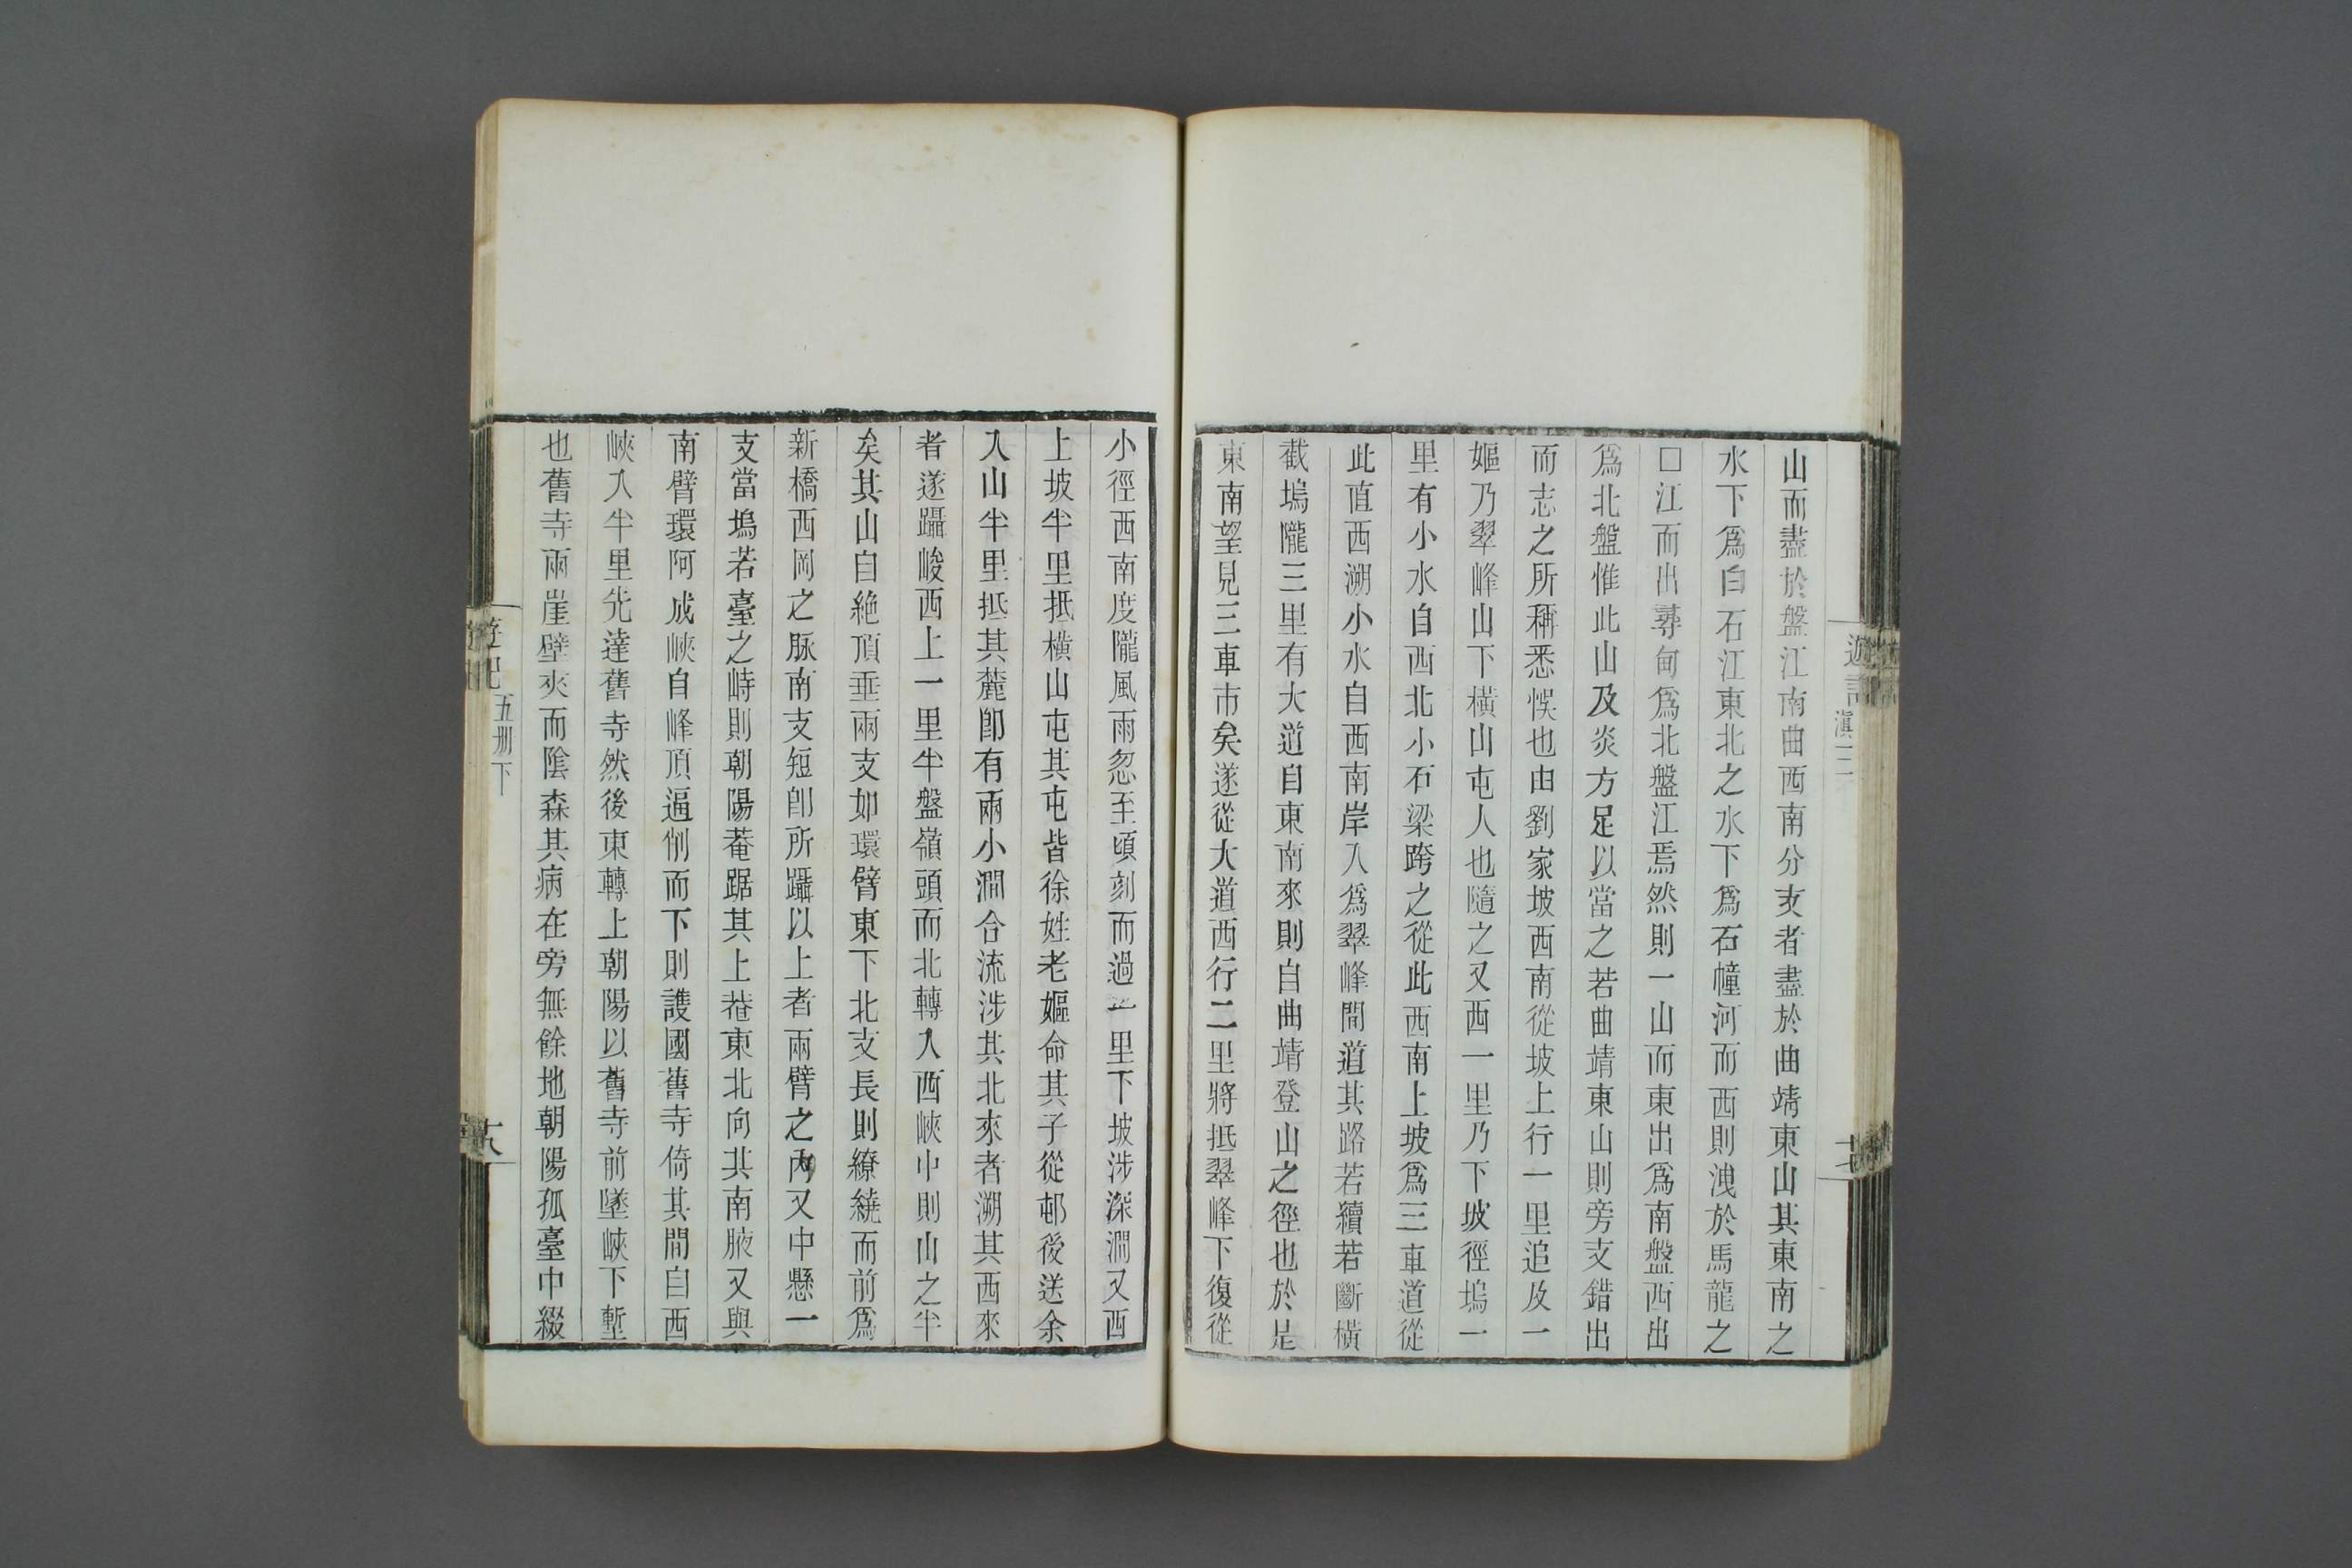 遊記
滇三
十七
山而盡於盤江南曲西南分支者盡於曲靖東山其東南之
水下爲白石江東北之水下爲石幢河而西則洩於馬龍之
□江而出尋甸爲北盤江焉然則一山而東出爲南盤西出
爲北盤惟此山及炎方足以當之若曲靖東山則旁支錯出
而志之所稱悉悞也由劉家坡西南從坡上行一里追及一
嫗乃翠峰山下橫山屯人也隨之又西一里乃下坡徑塢一
里有小水自西北小石梁跨之從此西南上坡爲三車道從
此直西溯小水自西南岸入爲翠峰間道其路若續若斷橫
截塢隴三里有大道自東南來則自曲靖登山之徑也於是
東南望見三車市矣遂從大道西行二里將抵翠峰下復從
小徑西南度隴風雨忽至頃刻而過一里下坡涉深澗又西
上坡半里抵橫山屯其屯皆徐姓老嫗命其子從邨後送余
入山半里抵其麓卽有兩小澗合流涉其北來者溯其西來
者遂躡峻西上一里半盤嶺頭而北轉入西峽中則山之半
矣其山自絶頂垂兩支如環臂東下北支長則繚繞而前爲
新橋西岡之脉南支短卽所躡以上者兩臂之內又中懸一
支當塢若臺之峙則朝陽菴踞其上菴東北向其南腋又與
南臂環阿成峽自峰頂逼削而下則護國舊寺倚其間自西
峽入半里先達舊寺然後東轉上朝陽以舊寺前墜峽下塹
也舊寺兩崖壁夾而陰森其病在旁無餘地朝陽孤臺中綴
遊記
五册下
十八